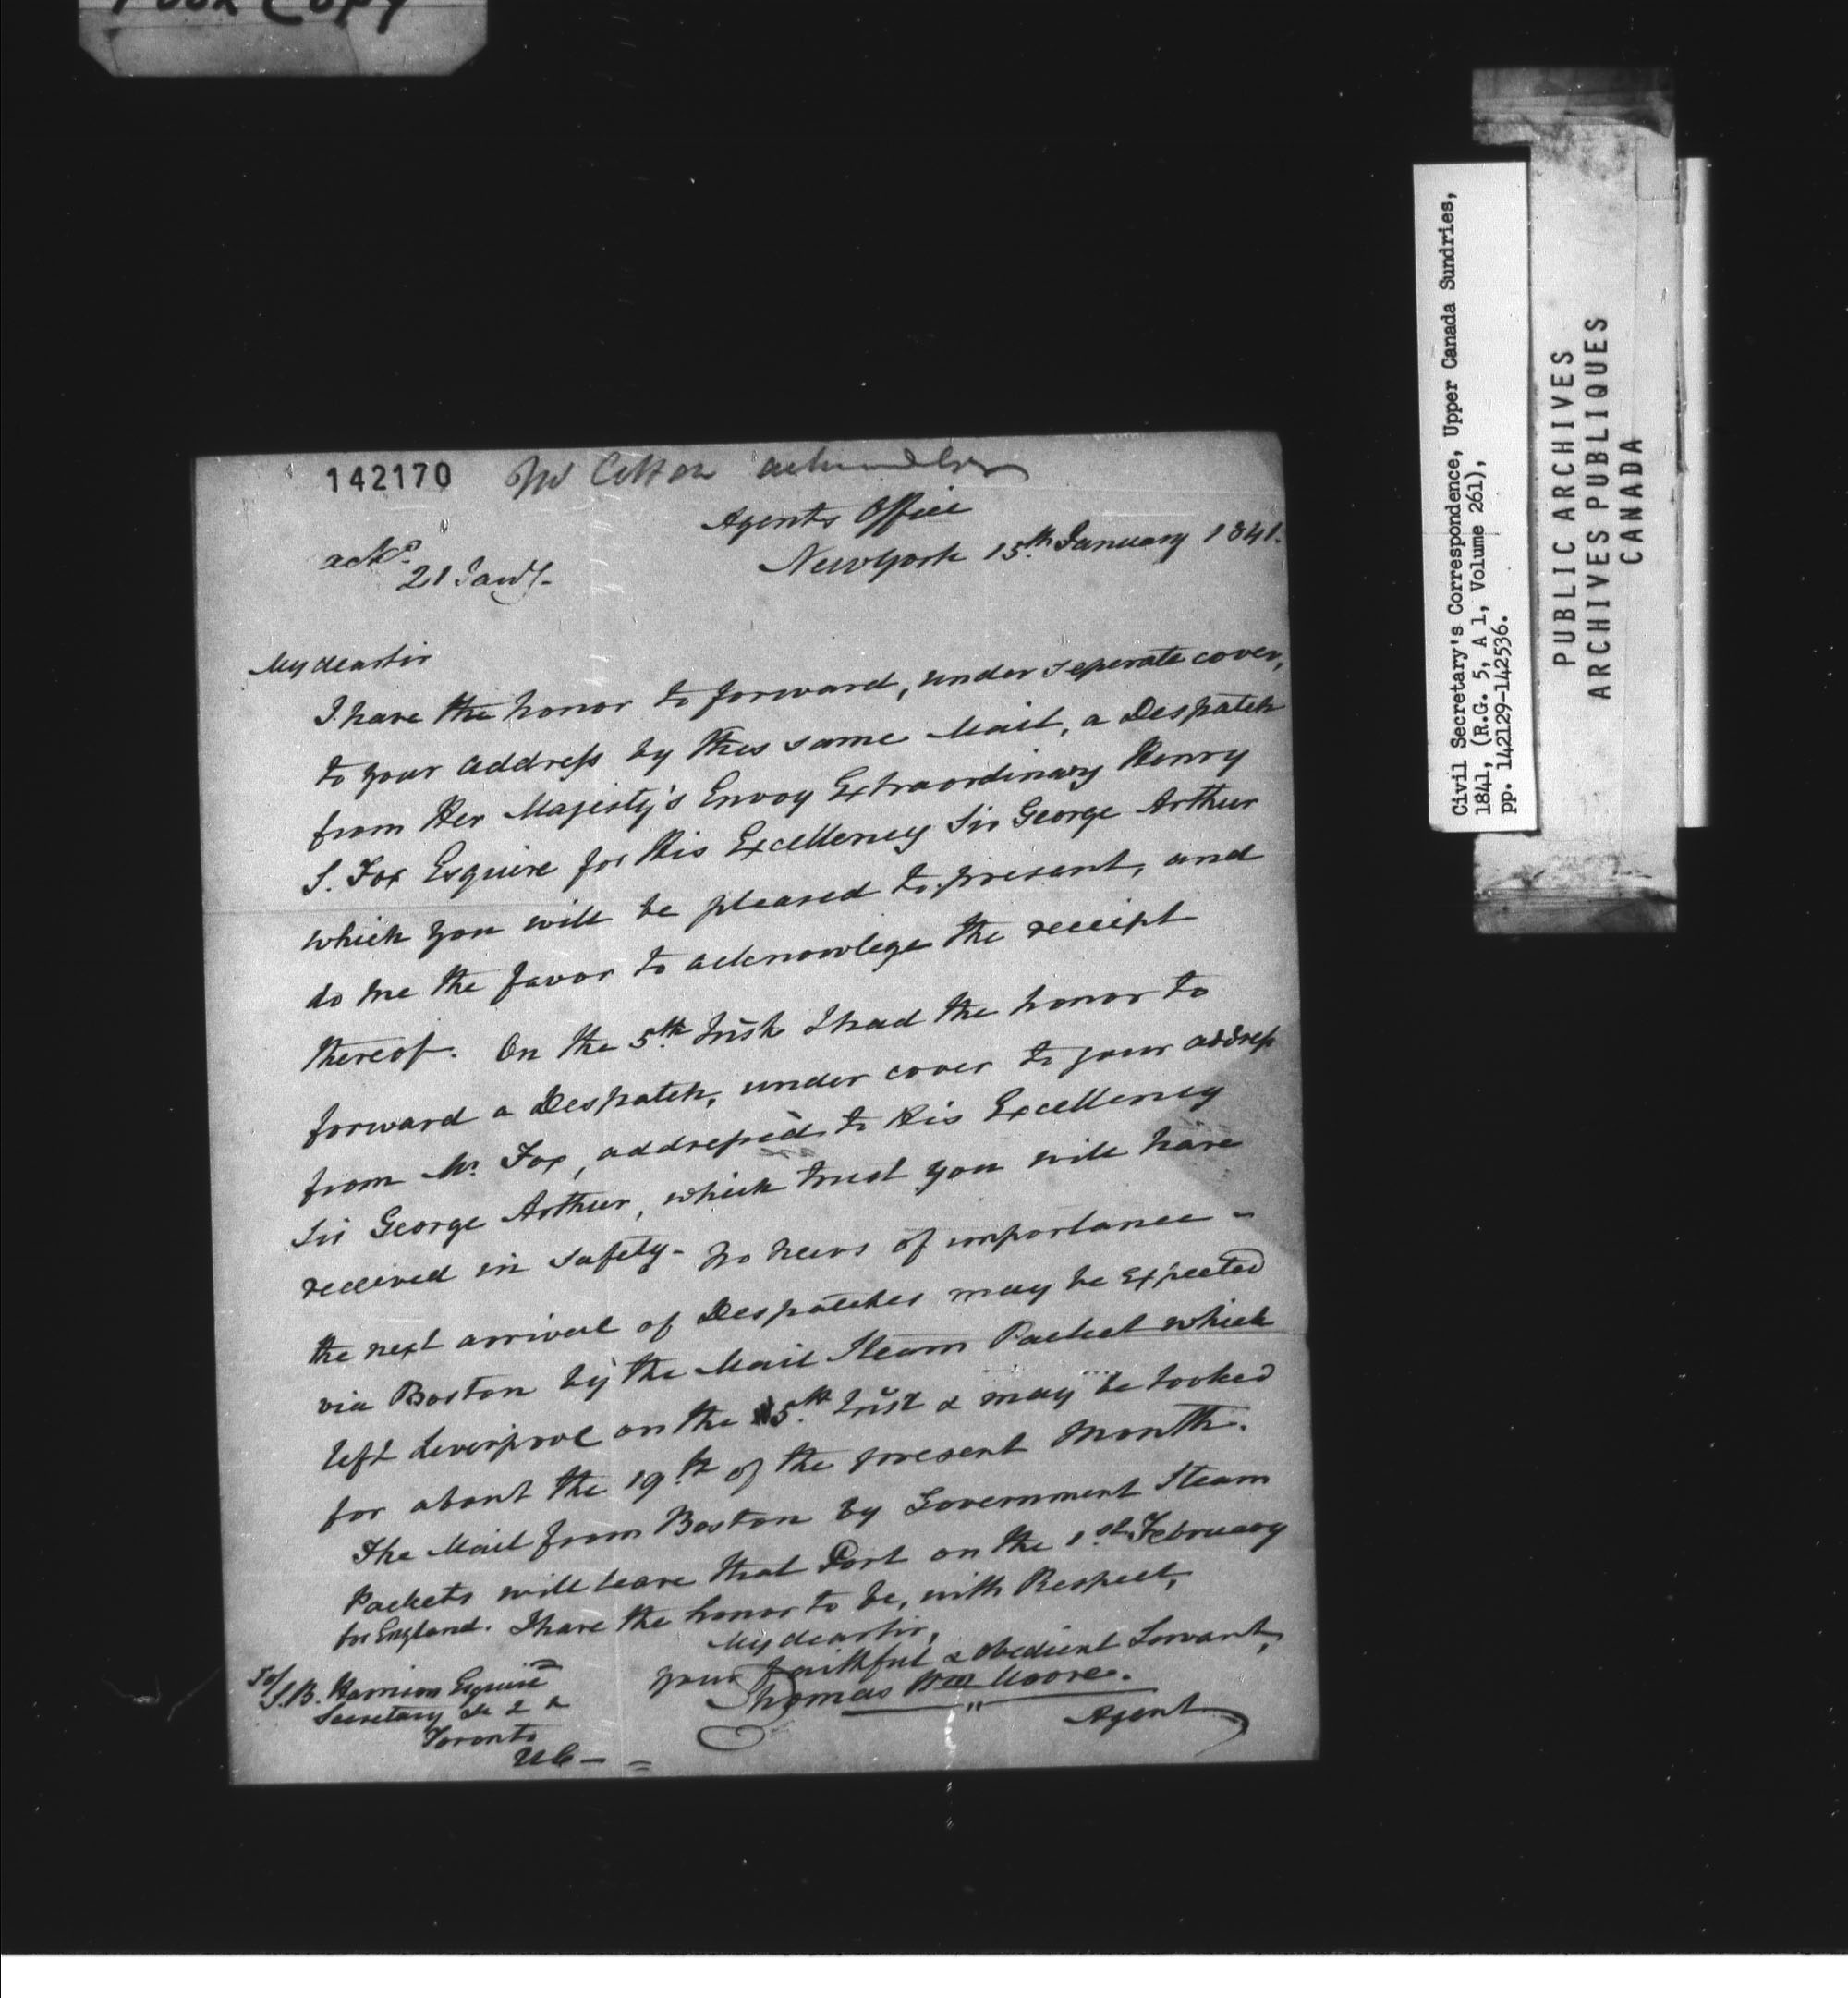 Poor Copy
142170
ackd.
21 Jany.
Agents Office
New York 15th January 1841.
My dear sir
I have the honor to forward, under seperate cover,
to your address by this same Mail, a Despatch
from Her Majesty's Envoy Extraordinary Henry
S. Fox Esquire for His Excellency Sir George Arthur
which you will be pleased to present, and
do me the favor to acknowlege the receipt
thereof. On the 5th Inst. I had the honor to
forward a Despatch, under cover to your address
from Mr. Fox, addressed to His Excellency
Sir George Arthur, which trust you will have
received in safety - No news of importance -
the next arrival of Despatches may be expected
via Boston by the Mail Steam Packet which
left Liverpool on the 5th Inst & may be looked
for about the 19th of the present Month.
The Mail from Boston by Government Steam
Packets will leave that Port on the 1st February
for England. I have the honor to be, with Respect,
My dear sir,
your faithful & obedient Servant,
Thomas Wm Moore.
Agent
To/
S.B. Harrison Esquire
Secretary &c &c &c
Toronto
UC -
Civil Secretary's Correspondence, Upper Canada Sundries,
1841, (R.G. 5, A 1, Volume 261),
pp. 142129-142536.
PUBLIC ARCHIVES
ARCHIVES PUBLIQUES
CANADA